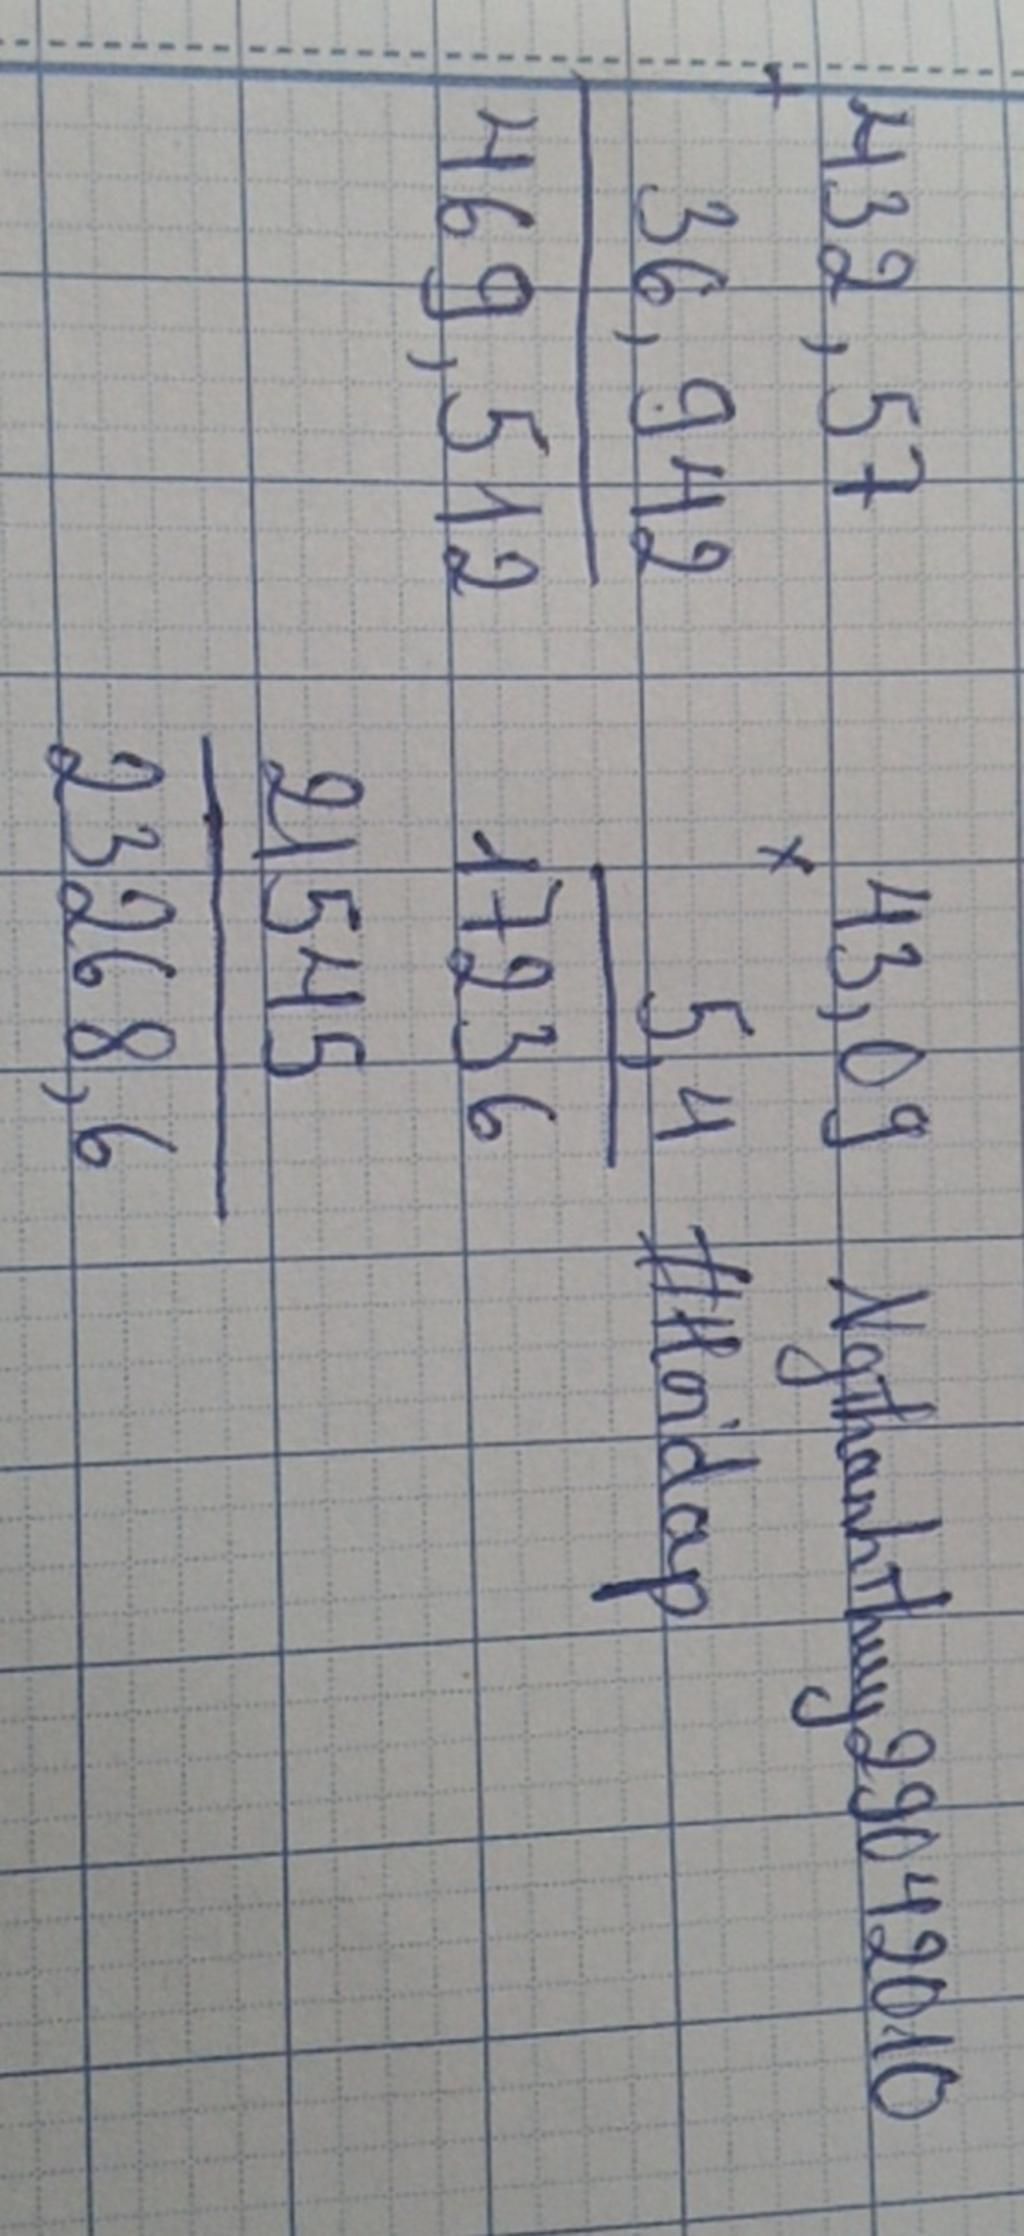 + 432,57
36,942
469,512
× 43,09
5,4
17236
21545
23268,6
NgThanhThuy29042010
#Hoidap